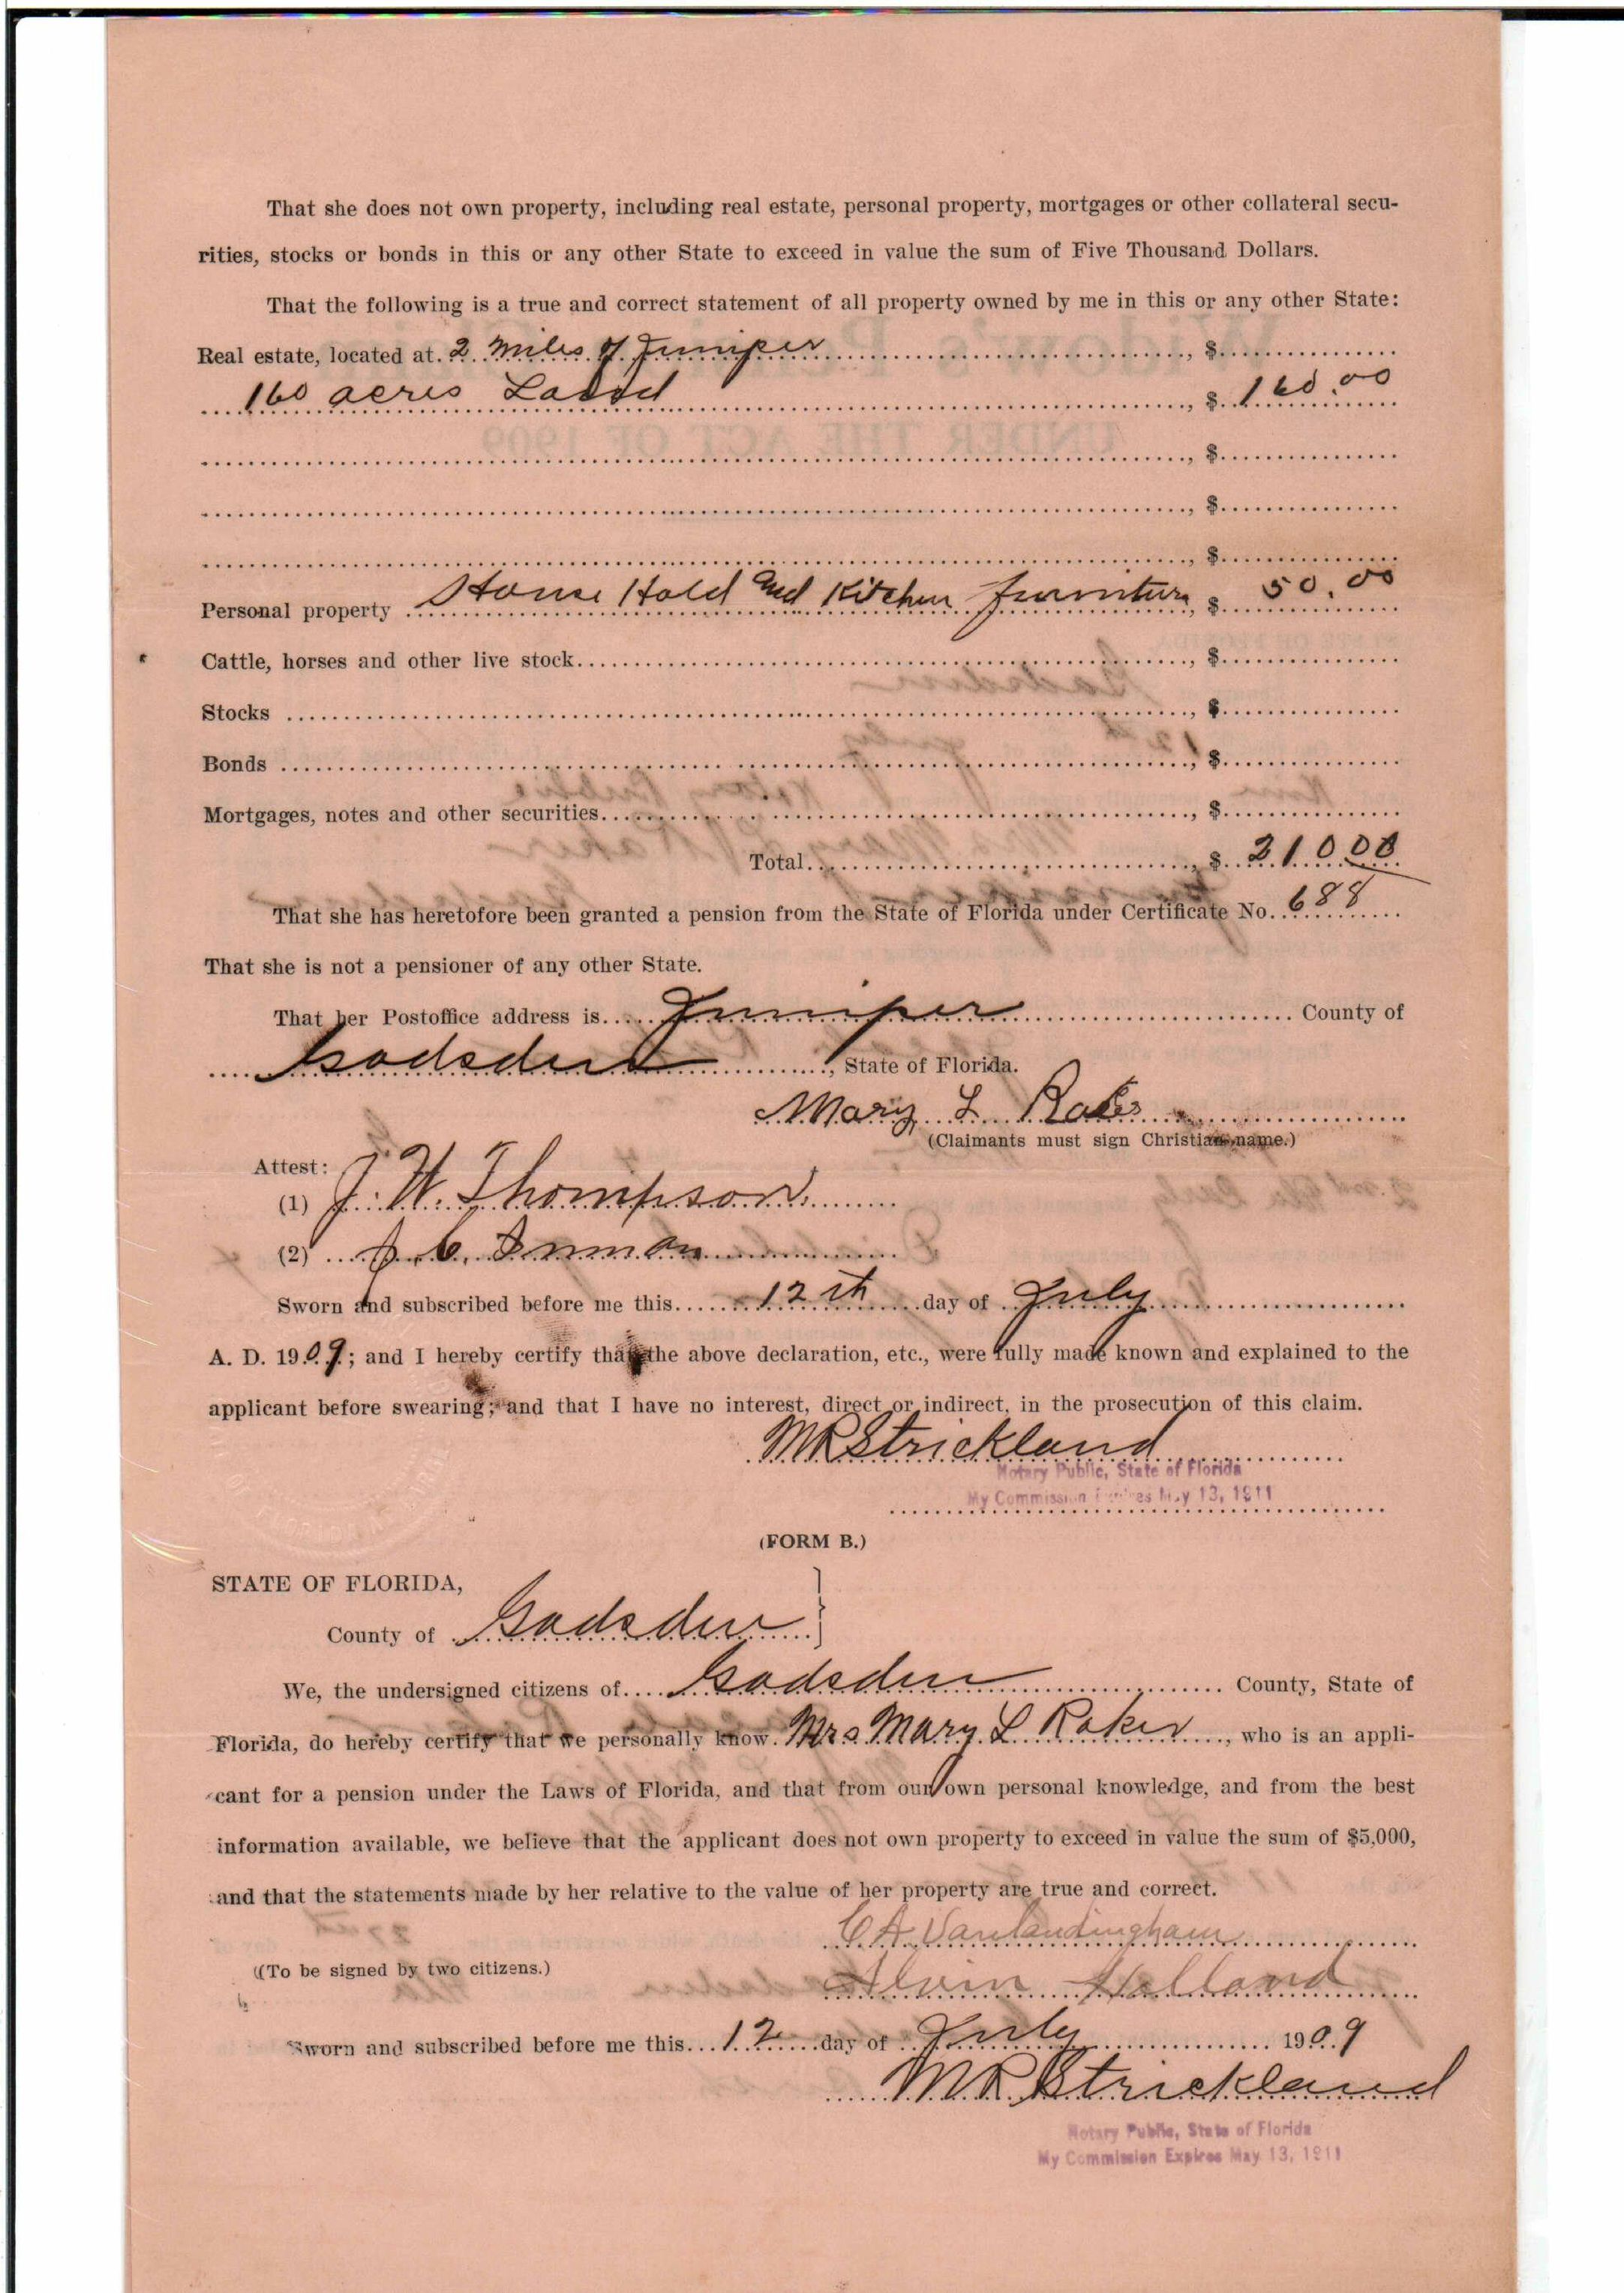 That she does not own property, including real estate, personal property, mortgages or other collateral secu-
rities, stocks or bonds in this or any other State to exceed in value the sum of Five Thousand Dollars.
That the following is a true and correct statement of all property owned by me in this or any other State:
Real estate, located at 2 Miles of Juniper, $
160 acres Land, $ 160.00
, $
, $
, $
Personal property House Hold and Kitchen furniture, $ 50.00
Cattle, horses and other live stock, $
Stocks, $
Bonds, $
Mortgages, notes and other securities, $
Total, $ 210 00
That she has heretofore been granted a pension from the State of Florida under Certificate No. 688
That she is not a pensioner of any other State.
That her Postoffice address is Juniper County of
Gadsden, State of Florida.
Mary L Raker
(Claimants must sign Christian name.)
Attest:
(1) J. W. Thompson
(2) J. C. Inman
Sworn and subscribed before me this 12th day of July
A. D. 1909; and I hereby certify that the above declaration, etc., were fully made known and explained to the
applicant before swearing; and that I have no interest, direct or indirect, in the prosecution of this claim.
MR Strickland
Notary Public, State of Florida
My Commission Expires May 13, 1911
(FORM B.)
STATE OF FLORIDA,
County of Gadsden
We, the undersigned citizens of Gadsden County, State of
Florida, do hereby certify that we personally know Mrs Mary L Raker, who is an appli-
cant for a pension under the Laws of Florida, and that from our own personal knowledge, and from the best
information available, we believe that the applicant does not own property to exceed in value the sum of $5,000,
and that the statements made by her relative to the value of her property are true and correct.
C A Vanlandingham
((To be signed by two citizens.)
Alvin Holland
Sworn and subscribed before me this 12 day of July 1909
MR Strickland
Notary Public, State of Florida
My Commission Expires May 13, 1911